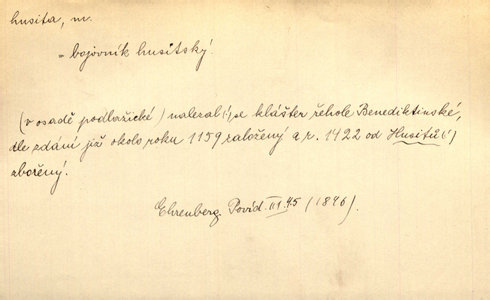 husita, m.
= bojovník husitský.
(v osadě podlažické) nalezal(!) se klášter řehole Benediktinské,
dle zdání již okolo roku 1159 založený a r. 1422 od Husitů(!)
zbořený.
Ehrenberg. Povíd. III. 45 (1846).